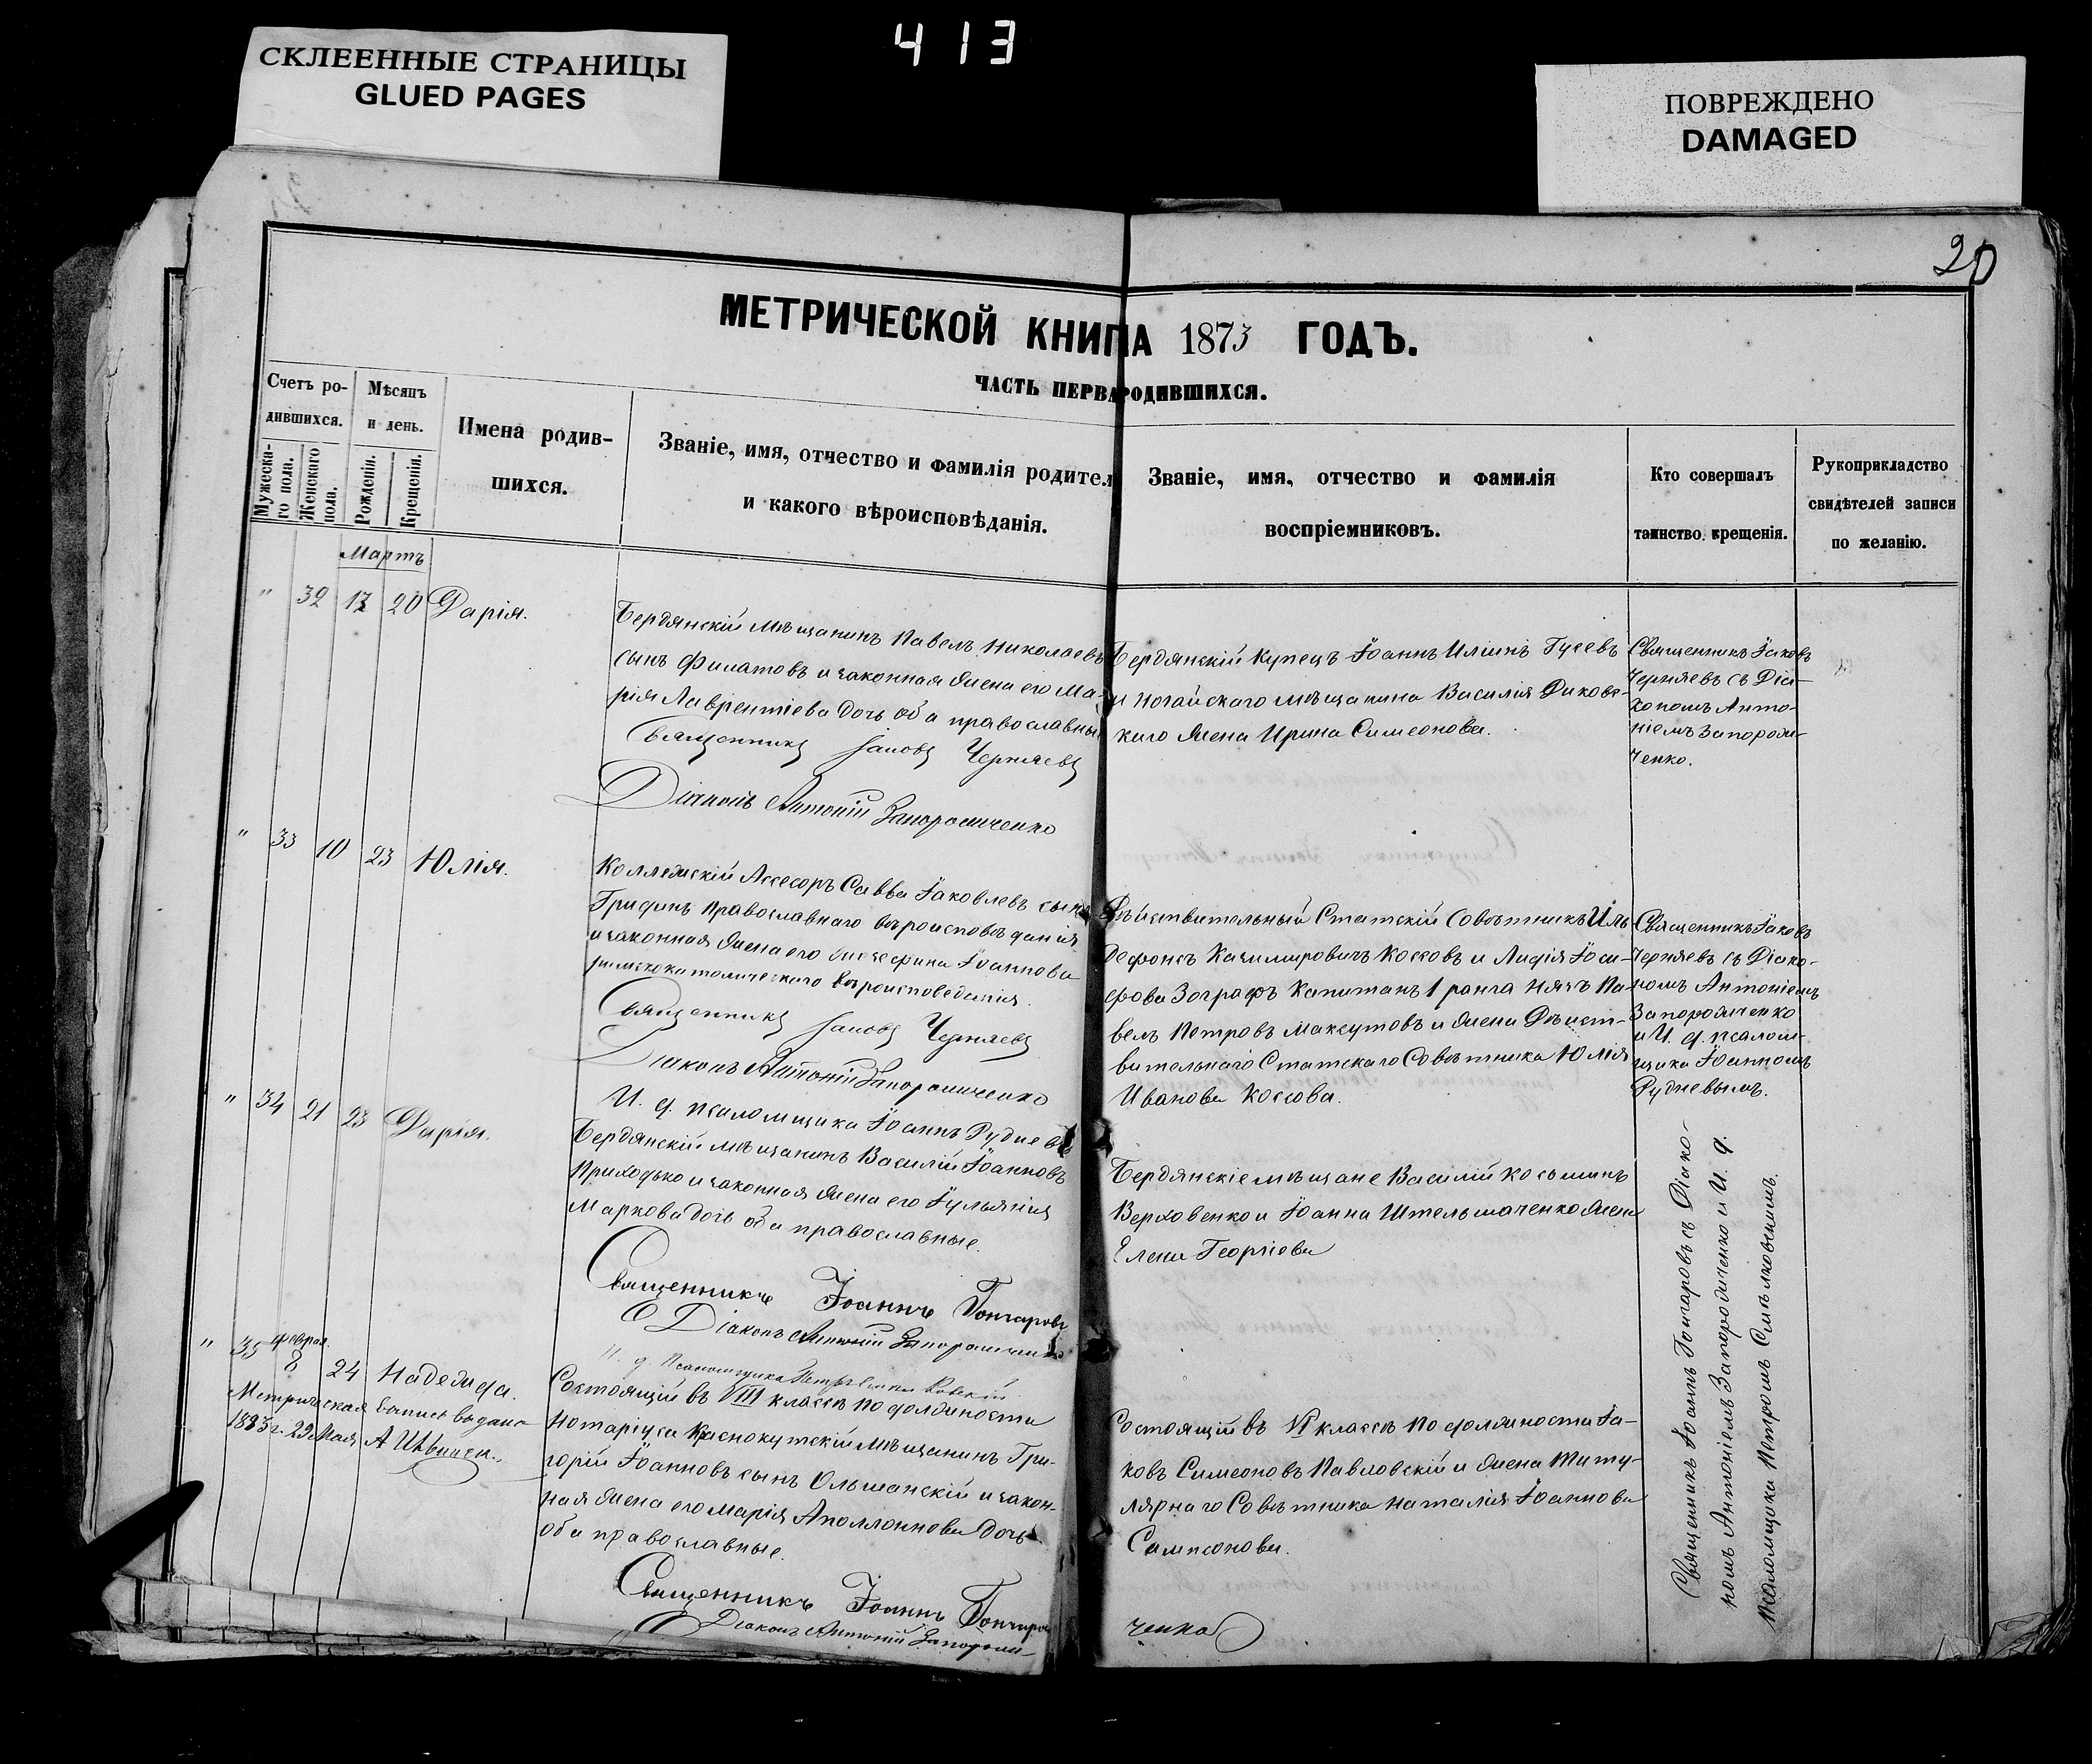 413
СКЛЕЕННЫЕ СТРАНИЦЫ
GLUED PAGES
ПОВРЕЖДЕНО
DAMAGED
20
МЕТРИЧЕСКОЙ КНИГА 1873 ГОДЪ.
ЧАСТЬ ПЕРВА РОДИВШИХСЯ.
Счетъ ро-
дившихся.
Мужеска-
го пола.
Женскаго
пола.
Мѣсяцъ
и день.
Рожденія.
Крещенія.
Имена родив-
шихся.
Званіе, имя, отчество и фамилія родител
и какого вѣроисповѣданія.
Званіе, имя, отчество и фамилія
воспріемниковъ.
Кто совершалъ
таинство крещенія.
Рукоприкладство
свидѣтелей записи
по желанію.
Мартъ
" 32 17 20 Дарія.
Бердянскій мѣщанинъ Павелъ Николаевъ
сынъ Филатовъ и законная жена его Ма-
рія Лаврентіева дочь оба православны
Священникъ Іаковъ Черняевъ
Діаконъ Антоній Запорожченко
Бердянскій Купецъ Іоаннъ Иліинъ Гусевъ
и Ногайскаго мѣщанина Василія Диковс-
каго жена Ирина Симеонова.
Священникъ Іаковъ
Черняевъ съ Діа-
кономъ Анто-
ніемъ Запорож-
ченко.
" 33 10 23 Юлія.
Коллежскій Ассесоръ Савва Іаковлевъ сынъ
Грифинъ православнаго вѣроисповѣданія
и законная жена его Іоаннова
римскокатолическаго вѣроисповеданія.
Священникъ Іаковъ Черняевъ
Діаконъ Антоній Запорожченко
И. д. псаломщика Іоаннъ Рудневъ
Дѣйствительный Статскій Совѣтникъ Иль
дефонсъ Казимировичъ Коссовъ и Лидія Іоси-
фова Зографъ Капитанъ 1 ранга Князь Па-
велъ Петровъ Максутовъ и жена Дѣйст-
вительнаго Статскаго Совѣтника Юлія
Иванова Коссова.
Священникъ Іаковъ
Черняевъ съ Діако-
номъ Антоніемъ
Запорожченко
и И. д. псалом-
щика Іоанномъ
Рудневымъ.
" 34 21 23 Дарія.
Бердянскій мѣщанинъ Василій Іоанновъ
Приходько и законная жена его Іульянія
Маркова дочь оба православные.
Священникъ Іоаннъ Гончаровъ
Діаконъ Антоній Запорожченко
И. д. Псаломщика Петръ
Бердянскіе мѣщане Василій Косьминъ
Верховенко и Іоанна Штельмаченко жена
Елена Георгіева
Священникъ Іоаннъ Гончаровъ съ Діако-
номъ Антоніемъ Запорожченко и И. д.
псаломщика Петромъ
феврал.
" 35 8 24 Надежда.
Метрическая выпись выдана
1883 г. 29 Мая
Состоящій въ VIII классѣ по должности
Нотаріуса Краснокутскій мѣщанинъ Гри-
горій Іоанновъ сынъ Ольшанскій и закон-
ная жена его Марія Аполлоннова дочь
оба православные.
Священникъ Іоаннъ Гончаров
Діаконъ Антоній Запорож-
Состоящій въ VI классѣ по должности Іа-
ковъ Симеоновъ Павловскій и жена Титу-
лярнаго Совѣтника Наталія Іоаннова
Сампсонова.
ченко